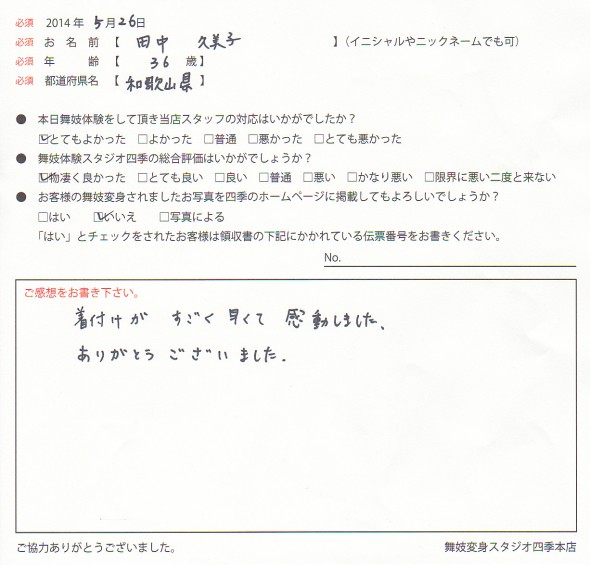 必須 2014年 5月26日
必須 お名前【 田中 久美子 】(イニシャルやニックネームでも可)
必須 年齢【 36 歳】
必須 都道府県名【 和歌山県 】
● 本日舞妓体験をして頂き当店スタッフの対応はいかがでしたか?
☑とてもよかった □よかった □普通 □悪かった □とても悪かった
● 舞妓体験スタジオ四季の総合評価はいかがでしょうか?
☑物凄く良かった □とても良い □良い □普通 □悪い □かなり悪い □限界に悪い二度と来ない
● お客様の舞妓変身されましたお写真を四季のホームページに掲載してもよろしいでしょうか?
□はい ☑いいえ □写真による
「はい」とチェックをされたお客様は領収書の下記にかかれている伝票番号をお書きください。
No.
ご感想をお書き下さい。
着付けが すごく早くて 感動しました、
ありがとう ございました.
ご協力ありがとうございました。 舞妓変身スタジオ四季本店